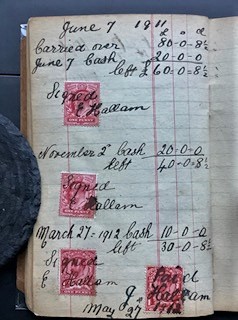 June 7 1911
£ s d
Carried over 80-0-8½
June 7 Cash 20-0-0
left £60-0-8½
Signed
E Hallam
ONE PENNY
November 2nd Cash 20-0-0
left 40-0-8½
Signed
E Hallam
ONE PENNY
March 27-1912 Cash 10-0-0
left 30-0-8½
Signed
E Hallam
ONE PENNY
Hallam
May 27 1912